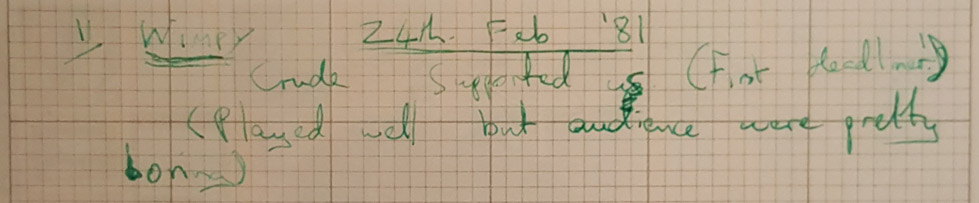 1) Wimpy 24th. Feb '81
Crude Supported us (First Headliner!)
(Played well but audience were pretty
boring)